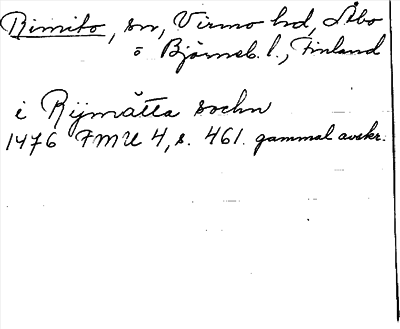 Rimito, sn, Virmo hd, Åbo
o Björneb. l., Finland
i Rijmåtta sochn
1476 FMU 4, s. 461. gammal avskr.